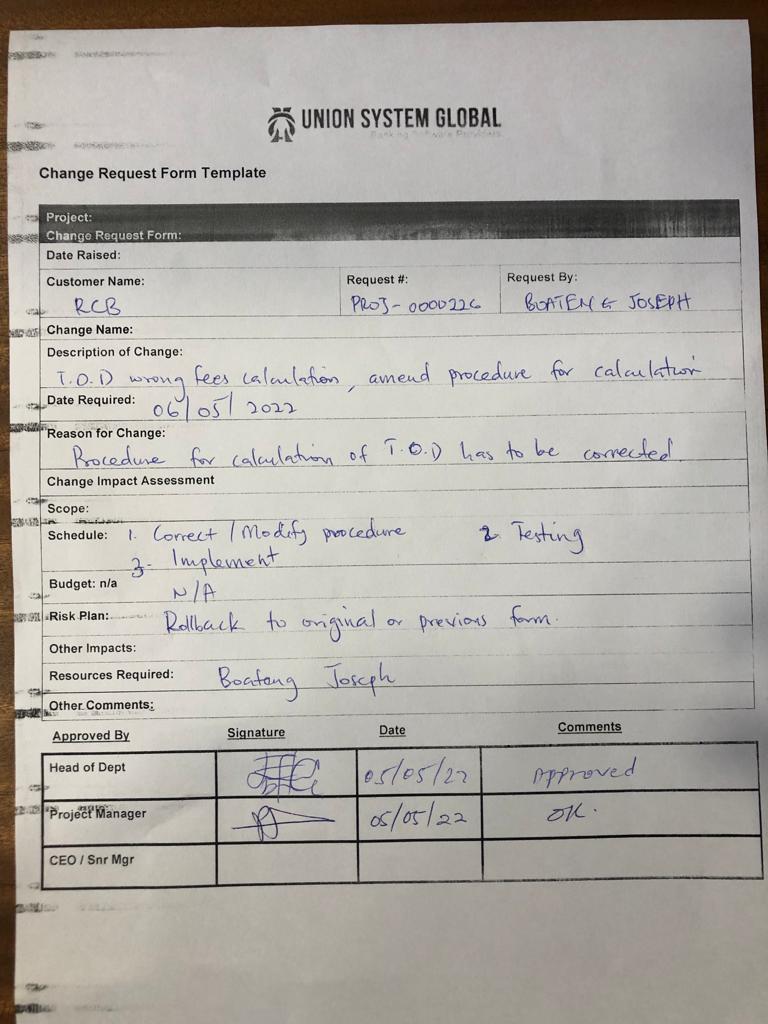 UNION SYSTEM GLOBAL
Banking Software Providers
Change Request Form Template
Project:
Change Request Form:
Date Raised:
Customer Name: Request #: Request By:
RCB PROJ-0000226 BOATENG JOSEPH
Change Name:
Description of Change:
T.O.D wrong fees calculation, amend procedure for calculation
Date Required: 06/05/2022
Reason for Change:
Procedure for calculation of T.O.D has to be corrected.
Change Impact Assessment
Scope:
Schedule: 1. Correct / Modify procedure 2. Testing
3. Implement
Budget: n/a
N/A
Risk Plan: Rollback to original or previous form.
Other Impacts:
Resources Required: Boateng Joseph
Other Comments:
Approved By Signature Date Comments
Head of Dept 05/05/22 Approved
Project Manager 05/05/22 OK.
CEO / Snr Mgr